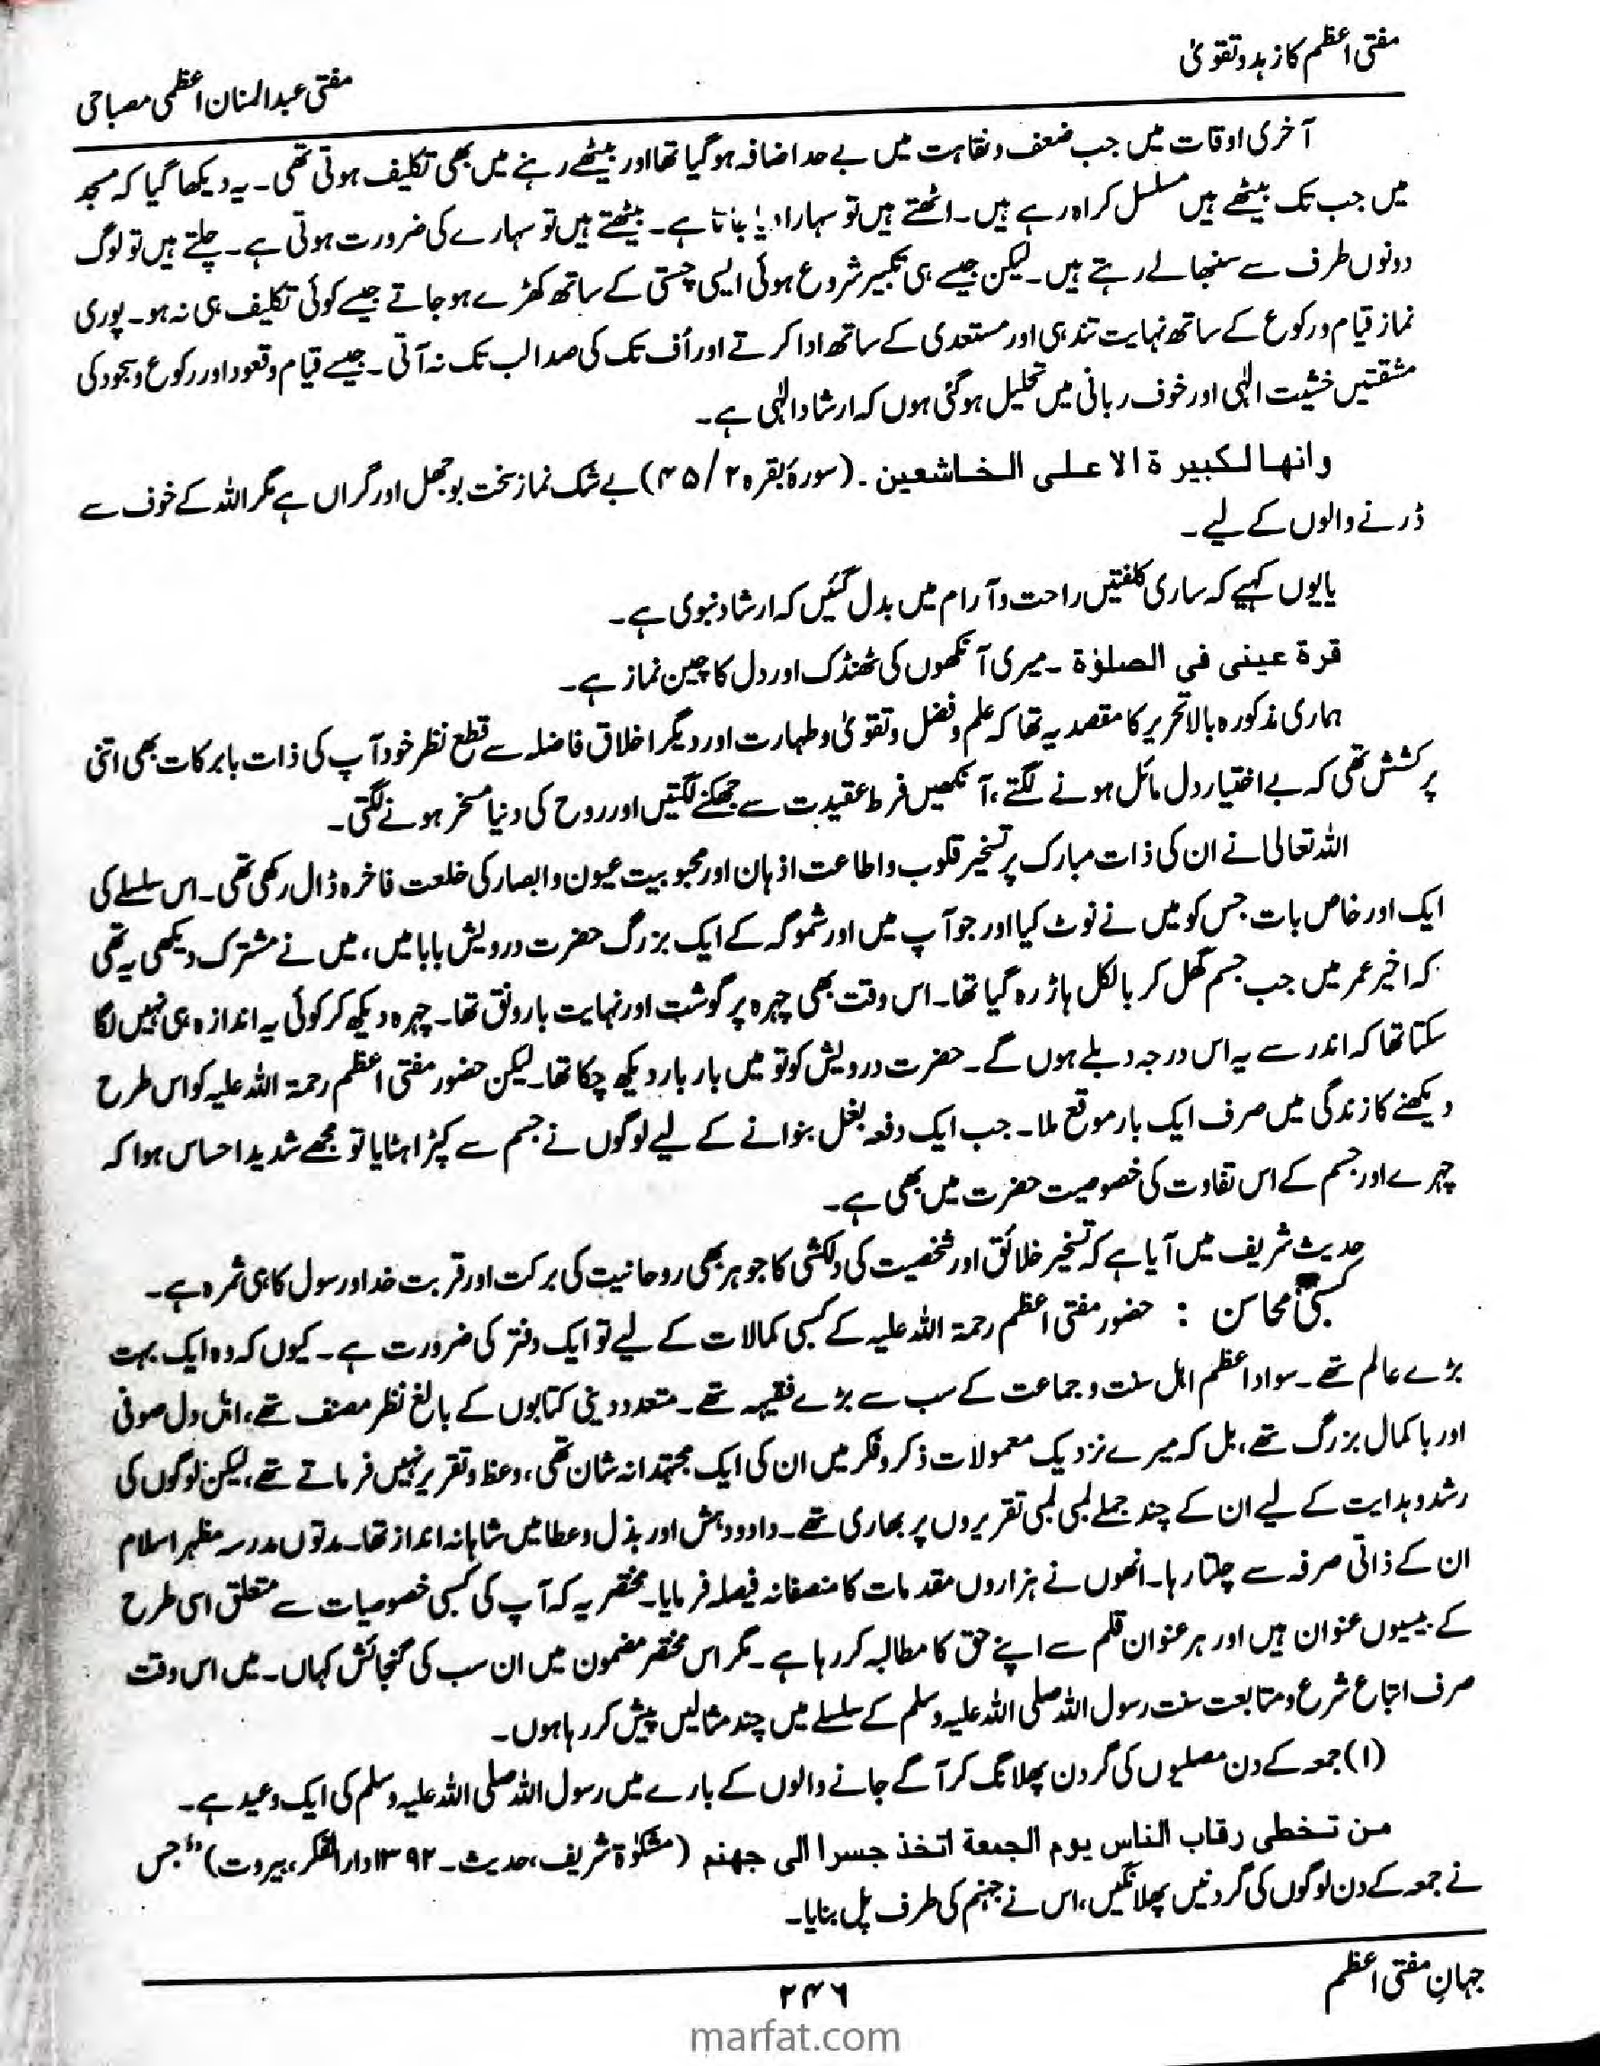 مفتی اعظم کا زہد و تقویٰ
مفتی عبدالمنان اعظمی مصباحی
آخری اوقات میں جب ضعف و نقاہت میں بے حد اضافہ ہوگیا تھا اور بیٹھے رہنے میں بھی تکلیف ہوتی تھی۔ یہ دیکھا گیا کہ مسجد
میں جب تک بیٹھے ہیں مسلسل کراہ رہے ہیں۔ اٹھتے ہیں تو سہارا دیا جاتا ہے۔ بیٹھتے ہیں تو سہارے کی ضرورت ہوتی ہے۔ چلتے ہیں تو لوگ
دونوں طرف سے سنبھالے رہتے ہیں۔ لیکن جیسے ہی تکبیر شروع ہوئی ایسی چستی کے ساتھ کھڑے ہو جاتے جیسے کوئی تکلیف ہی نہ ہو۔ پوری
نماز قیام و رکوع کے ساتھ نہایت تندہی اور مستعدی کے ساتھ ادا کرتے اور اُف تک کی صدا لب تک نہ آتی۔ جیسے قیام و قعود اور رکوع و سجود کی
مشقتیں خشیت الٰہی اور خوف ربانی میں تحلیل ہو گئی ہوں کہ ارشاد الٰہی ہے۔
وانها لكبيرة الا على الخاشعين۔ (سورۂ بقرہ ۲/ ۴۵) بے شک نماز سخت بوجھل اور گراں ہے مگر اللہ کے خوف سے
ڈرنے والوں کے لیے۔
یا یوں کہیے کہ ساری کلفتیں راحت و آرام میں بدل گئیں کہ ارشاد نبوی ہے۔
قرة عينى فى الصلوٰة ۔ میری آنکھوں کی ٹھنڈک اور دل کا چین نماز ہے۔
ہماری مذکورہ بالا تحریر کا مقصد یہ تھا کہ علم و فضل و تقویٰ و طہارت اور دیگر اخلاق فاضلہ سے قطع نظر خود آپ کی ذات بابرکات بھی اتنی
پر کشش تھی کہ بے اختیار دل مائل ہونے لگتے، آنکھیں فرط عقیدت سے جھکنے لگتیں اور روح کی دنیا مسخر ہونے لگتی۔
اللہ تعالیٰ نے ان کی ذات مبارک پر تسخیر قلوب و اطاعت اذہان اور محبوبیت عیون و ابصار کی خلعت فاخرہ ڈال رکھی تھی۔ اس سلسلے کی
ایک اور خاص بات جس کو میں نے نوٹ کیا اور جو آپ میں اور شموگہ کے ایک بزرگ حضرت درویش بابا میں، میں نے مشترک دیکھی یہ تھی
کہ اخیر عمر میں جب جسم گھل کر بالکل ہاڑ رہ گیا تھا۔ اس وقت بھی چہرہ پر گوشت اور نہایت بارونق تھا۔ چہرہ دیکھ کر کوئی یہ اندازہ ہی نہیں لگا
سکتا تھا کہ اندر سے یہ اس درجہ دبلے ہوں گے۔ حضرت درویش کو تو میں بار بار دیکھ چکا تھا۔ لیکن حضور مفتی اعظم رحمۃ اللہ علیہ کو اس طرح
دیکھنے کا زندگی میں صرف ایک بار موقع ملا۔ جب ایک دفعہ بغل بنوانے کے لیے لوگوں نے جسم سے کپڑا ہٹایا تو مجھے شدید احساس ہوا کہ
چہرے اور جسم کے اس تفاوت کی خصوصیت حضرت میں بھی ہے۔
حدیث شریف میں آیا ہے کہ تسخیر خلائق اور شخصیت کی دلکشی کا جوہر بھی روحانیت کی برکت اور قربت خدا و رسول کا ہی ثمرہ ہے۔
کسبی محاسن : حضور مفتی اعظم رحمۃ اللہ علیہ کے کسبی کمالات کے لیے تو ایک دفتر کی ضرورت ہے۔ کیوں کہ وہ ایک بہت
بڑے عالم تھے۔ سواد اعظم اہل سنت و جماعت کے سب سے بڑے فقیہہ تھے۔ متعدد دینی کتابوں کے بالغ نظر مصنف تھے، اہل دل صوفی
اور باکمال بزرگ تھے، بل کہ میرے نزدیک معمولات ذکر و فکر میں ان کی ایک مجتہدانہ شان تھی، وعظ و تقریر نہیں فرماتے تھے، لیکن لوگوں کی
رشد و ہدایت کے لیے ان کے چند جملے لمبی لمبی تقریروں پر بھاری تھے۔ داد و دہش اور بذل و عطا میں شاہانہ انداز تھا۔ مدتوں مدرسہ مظہر اسلام
ان کے ذاتی صرفہ سے چلتا رہا۔ انھوں نے ہزاروں مقدمات کا منصفانہ فیصلہ فرمایا۔ مختصر یہ کہ آپ کی کسبی خصوصیات سے متعلق اسی طرح
کے بیسیوں عنوان ہیں اور ہر عنوان قلم سے اپنے حق کا مطالبہ کر رہا ہے۔ مگر اس مختصر مضمون میں ان سب کی گنجائش کہاں۔ میں اس وقت
صرف اتباع شرع و متابعت سنت رسول اللہ صلی اللہ علیہ وسلم کے سلسلے میں چند مثالیں پیش کر رہا ہوں۔
(۱) جمعہ کے دن مصلیوں کی گردن پھلانگ کر آگے جانے والوں کے بارے میں رسول اللہ صلی اللہ علیہ وسلم کی ایک وعید ہے۔
من تخطى رقاب الناس يوم الجمعة اتخذ جسرا الى جهنم (مشکوٰۃ شریف، حدیث۔ ۱۳۹۲ دار الفکر، بیروت) ”جس
نے جمعہ کے دن لوگوں کی گردنیں پھلانگیں، اس نے جہنم کی طرف پل بنایا۔
جہانِ مفتی اعظم
۲۴۶
marfat.com